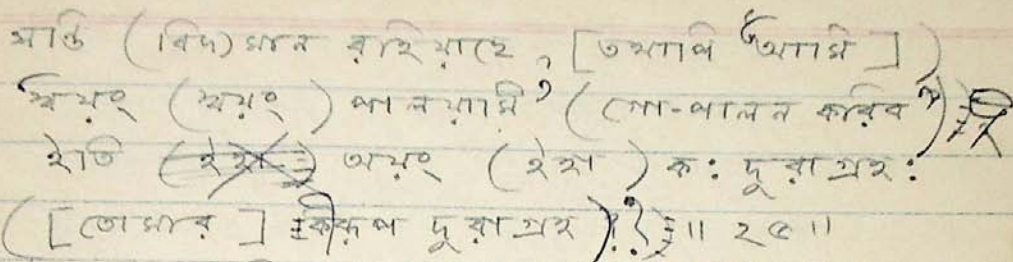 সন্তি (বিদ্যমান রহিয়াছে, [তথাপি আমি])
স্বয়ং (স্বয়ং) পালয়ামি, (গো-পালন করিব)
ইতি অয়ং (ইহা) কঃ দুরাগ্রহঃ
([তোমার] কীরূপ দুরাগ্রহ)?॥ ২৫॥